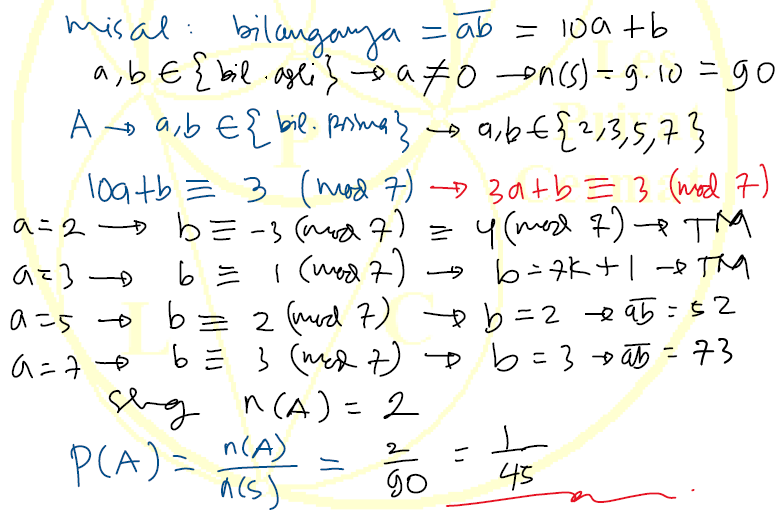 misal : bilangannya = ab̅ = 10a + b
a,b ∈ {bil. asli} → a ≠ 0 → n(S) = 9.10 = 90
A → a,b ∈ {bil. prima} → a,b ∈ {2,3,5,7}
10a+b ≡ 3 (mod 7) → 3a+b ≡ 3 (mod 7)
a=2 → b ≡ -3 (mod 7) ≡ 4 (mod 7) → TM
a=3 → b ≡ 1 (mod 7) → b = 7k+1 → TM
a=5 → b ≡ 2 (mod 7) → b = 2 → ab̅ = 52
a=7 → b ≡ 3 (mod 7) → b = 3 → ab̅ = 73
shng n(A) = 2
P(A) = n(A)/n(S) = 2/90 = 1/45